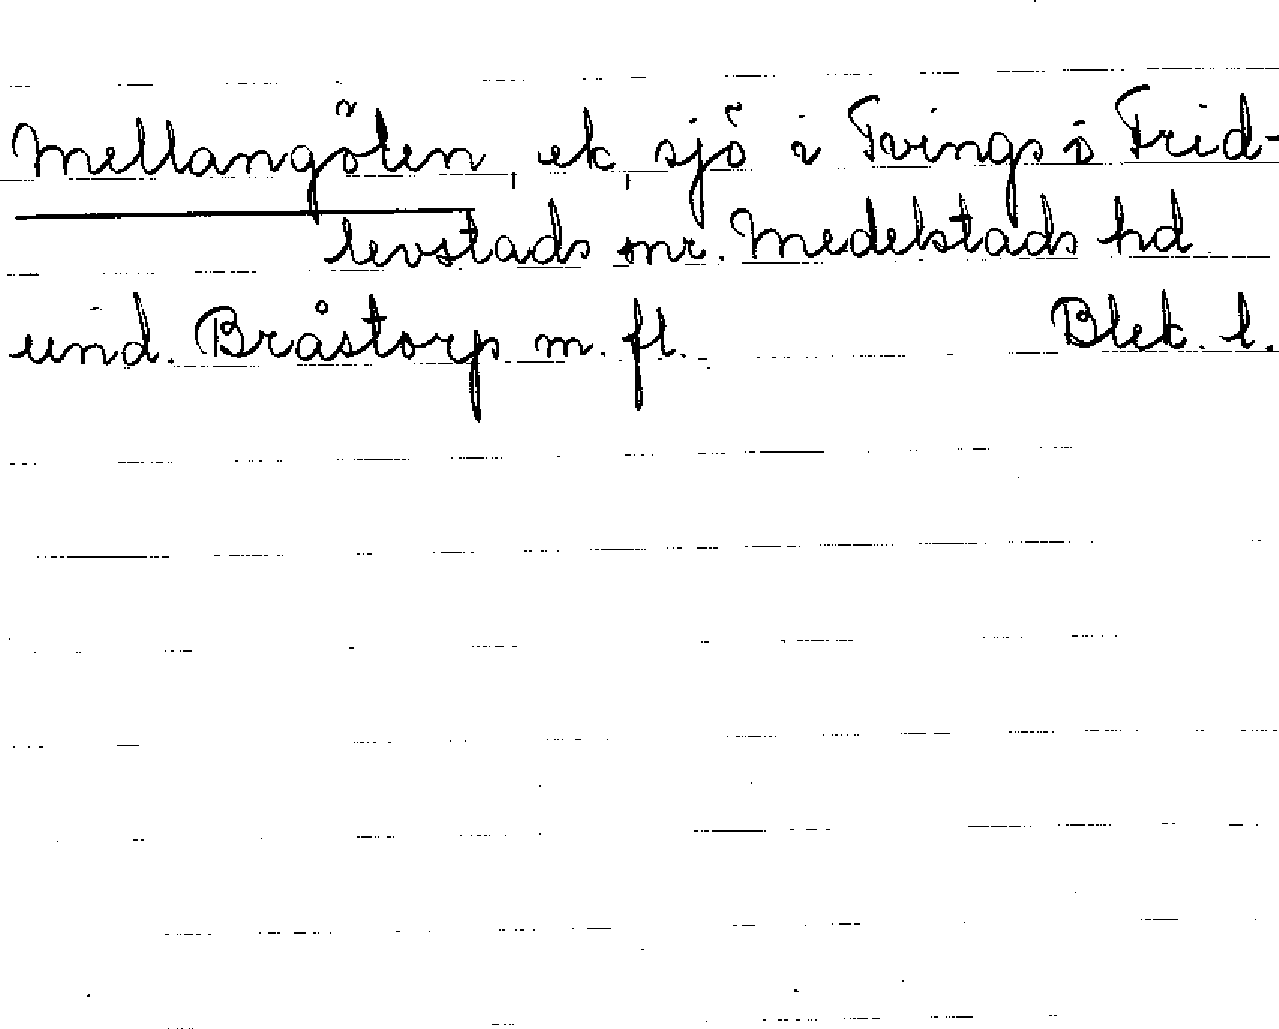 Mellangölen, ek, sjö i Tvings o Frid-
levstads snr. Medelstads hd
und. Bråstorp m. fl. Blek. l.